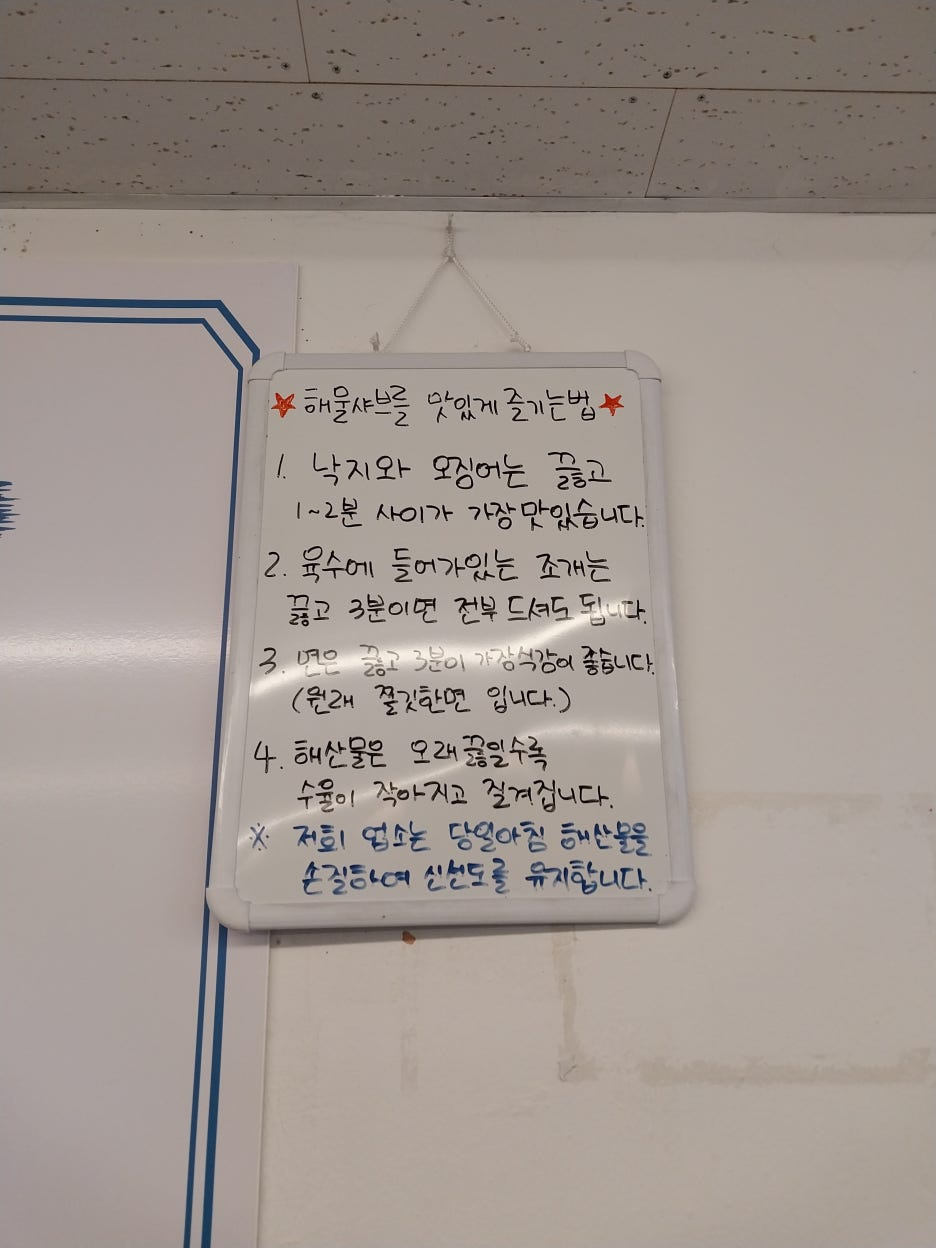 ★ 해물샤브를 맛있게 즐기는법 ★
1. 낙지와 오징어는 끓고
1~2분 사이가 가장맛있습니다.
2. 육수에 들어가있는 조개는
끓고 3분이면 전부 드셔도 됩니다.
3. 면은 끓고 3분이 가장식감이 좋습니다.
(원래 쫄깃한면 입니다.)
4. 해산물은 오래끓일수록
수율이 작아지고 질겨집니다.
※ 저희 업소는 당일아침 해산물을
손질하여 신선도를 유지합니다.